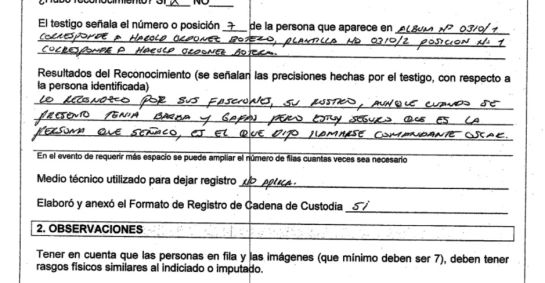 ¿Hubo reconocimiento? SI X NO
El testigo señala el número o posición 7 de la persona que aparece en ALBUM Nº 0310/1
CORRESPONDE A HAROLD ORDOÑEZ BOTERO, PLANTILLA NO 0310/2 POSICION Nº 1
CORRESPONDE A HAROLD ORDOÑEZ BOTERO.
Resultados del Reconocimiento (se señalan las precisiones hechas por el testigo, con respecto a
la persona identificada)
LO RECONOZCO POR SUS FASCIONES, SU ROSTRO, AUNQUE CUANDO SE
PRESENTO TENIA BARBA Y GAFAS PERO ESTOY SEGURO QUE ES LA
PERSONA QUE SEÑALO, ES EL QUE DIJO LLAMARSE COMANDANTE OSCAR.
En el evento de requerir más espacio se puede ampliar el número de filas cuantas veces sea necesario
Medio técnico utilizado para dejar registro NO APLICA.
Elaboró y anexó el Formato de Registro de Cadena de Custodia Si
2. OBSERVACIONES
Tener en cuenta que las personas en fila y las imágenes (que mínimo deben ser 7), deben tener
rasgos físicos similares al indiciado o imputado.